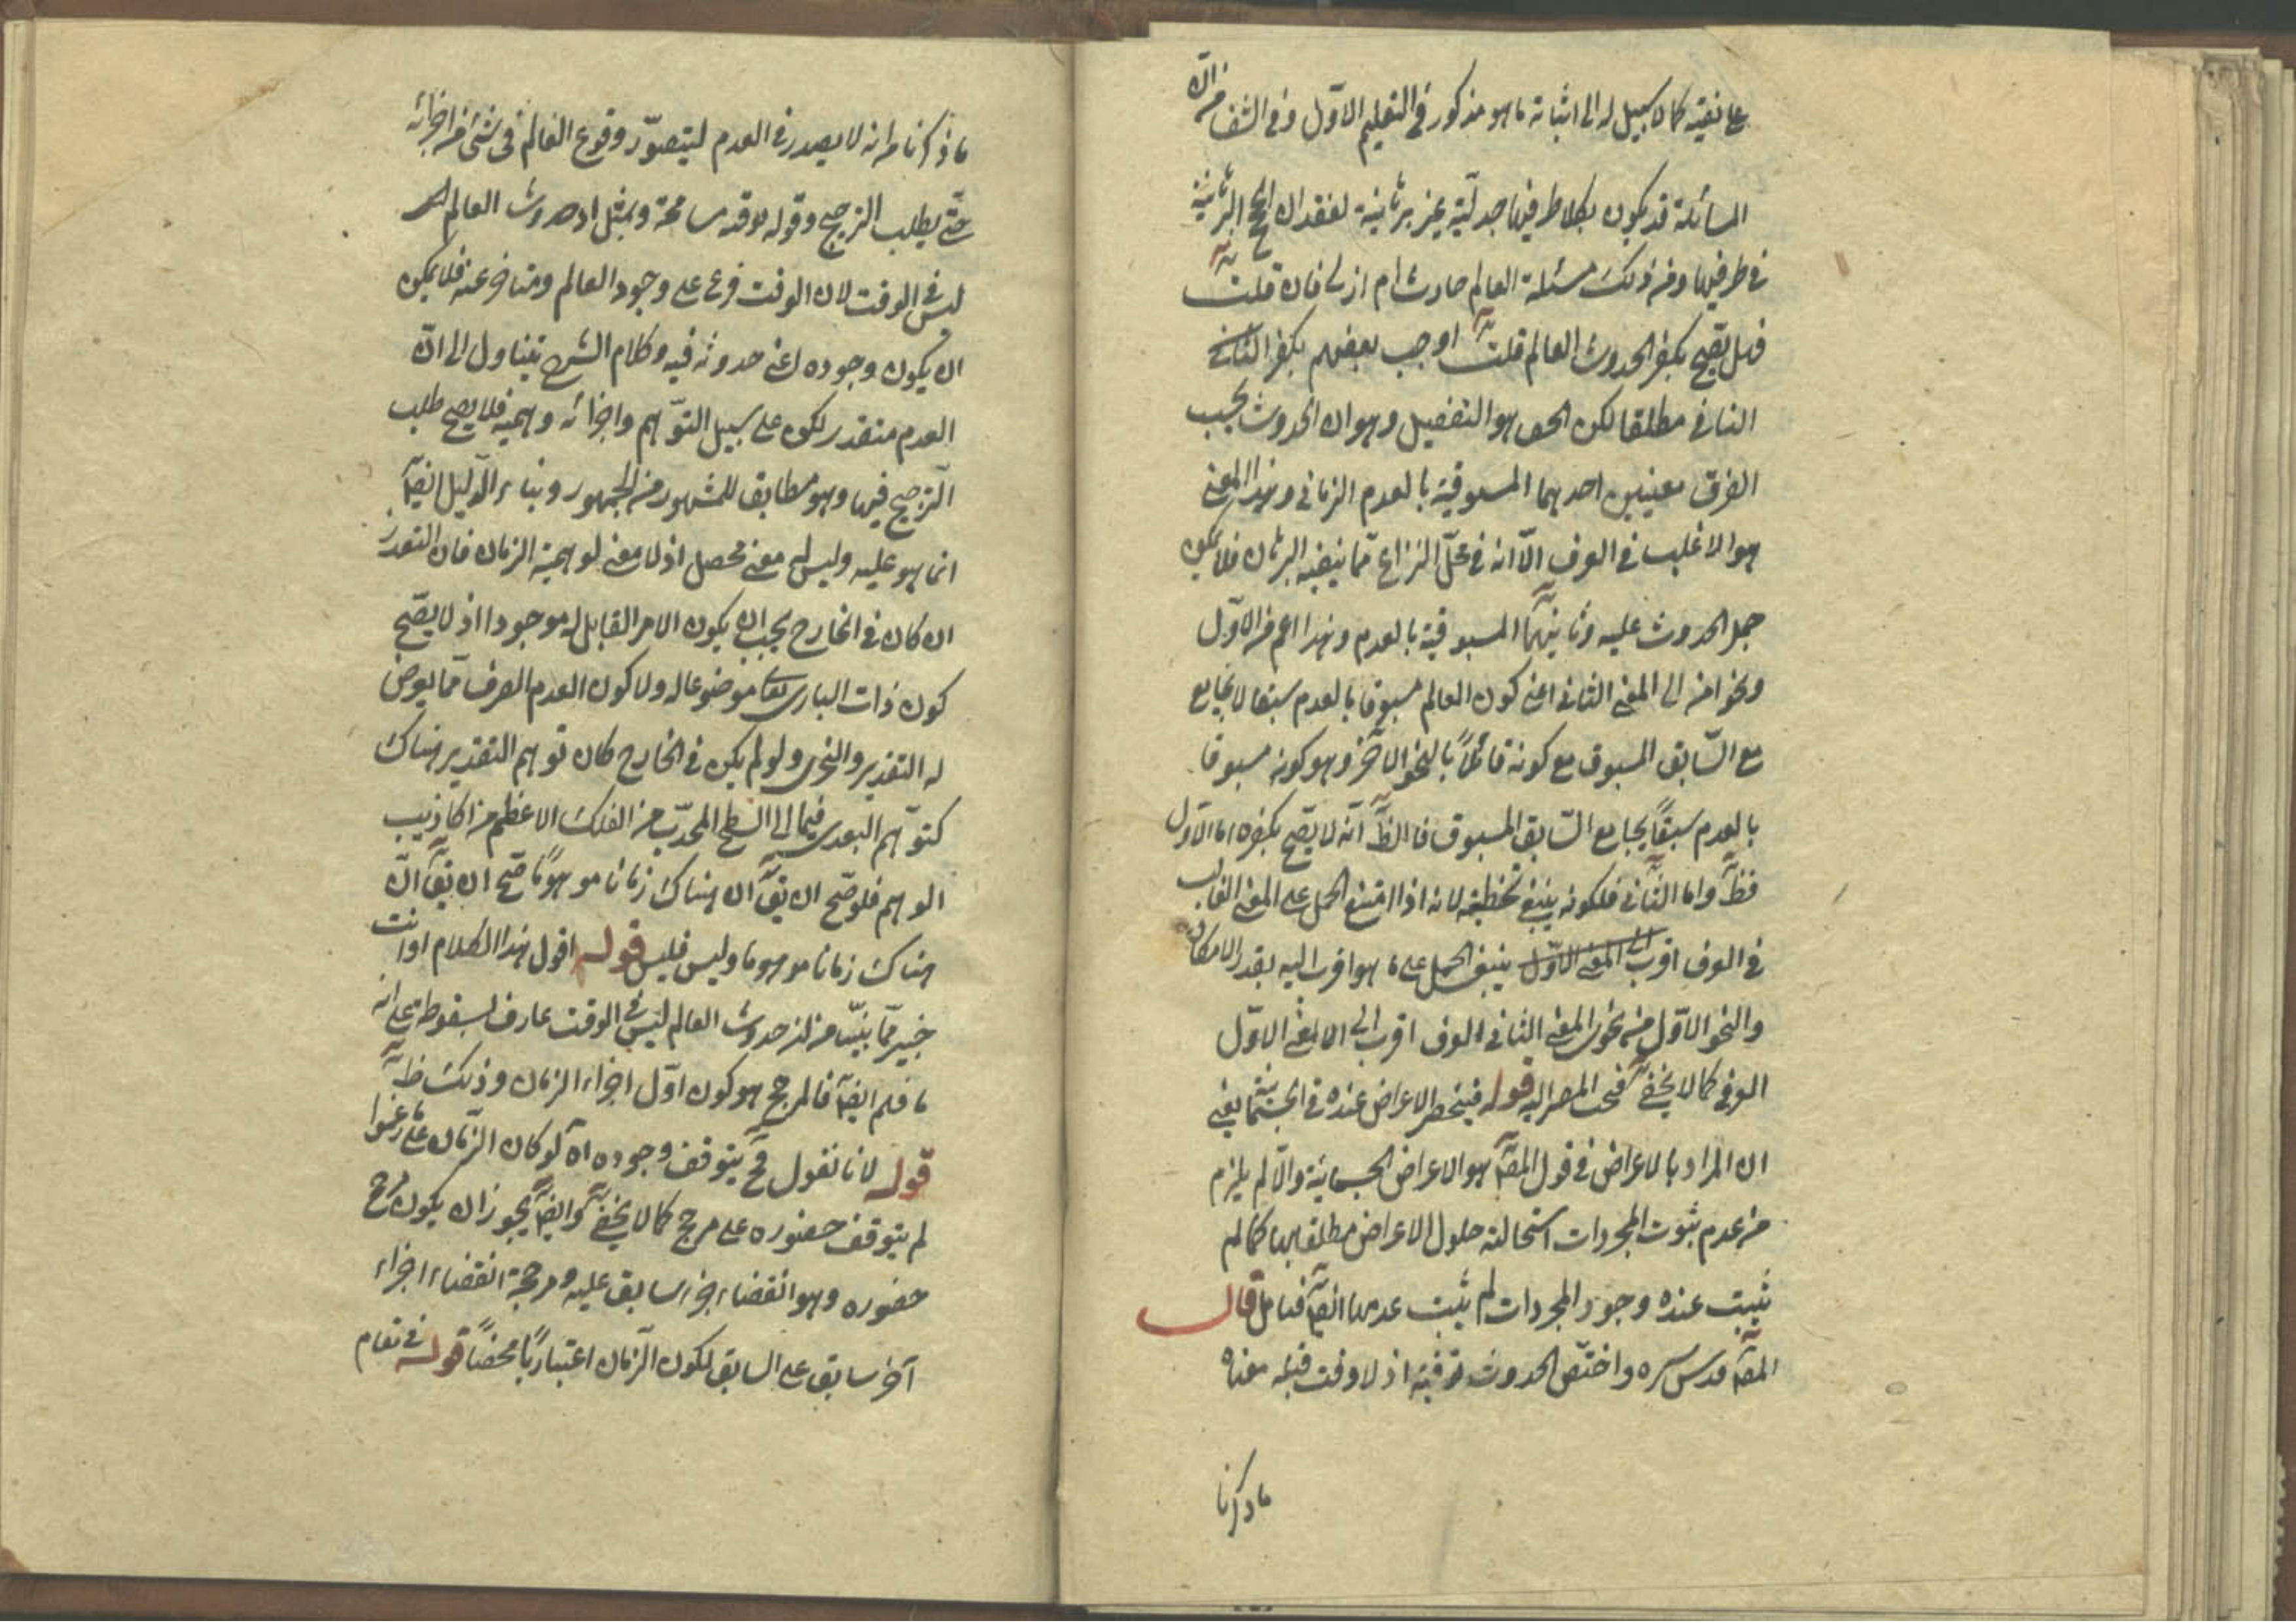 على نفيه كما لا سبيل له الى اثباته ما هو مذكور في التعليم الاول وفي الشفا من ان
المسائلة قد يكون بكلا طرفيها جدلية غير برهانية لفقدان الحجج البرهانية
في طرفيها ومن ذلك مسئلة العالم حادث ام ازلي فان قلت
فهل يصح بكفر الحدوث العالم قلت اوجب بعضهم بكفر القائل
الثاني مطلقا لكن الحق هو التفصيل وهو ان الحدوث بحسب
العرف معنيين احدهما المسبوقية بالعدم الزماني وهذا المعنى
هو الاغلب في العرف الا انه في محل النزاع مما ينفيه البرهان فلا يمكن
حمل الحدوث عليه وثانيهما المسبوقية بالعدم وهذا اعم من الاول
ونحو منه الى المعنى الثاني اعني كون العالم مسبوقا بالعدم سبقا لا يجامع
مع السابق المسبوق مع كونه قائلا بالنحو الآخر وهو كونه مسبوقا
بالعدم سبقا يجامع السابق المسبوق فالظ انه لا يصح بكفره اما الاول
فظ واما الثاني فلكونه ينبغي تخطيته لانه اذا امتنع الحمل على المعنى الغالب
في العرف اقرب الى المعنى الاول ينبغي الحمل على ما هو اقرب اليه بقدر الامكان
والنحو الاول من نحوى المعنى الثاني في العرف اقرب الى المعنى الاول
العرفي كما لا يخفى فيجب المصير اليه قوله فينحصر الاعراض عنده في الجسمانية يعني
ان المراد بالاعراض في قول المص هو الاعراض الجسمانية والا لم يلزم
من عدم ثبوت المجردات استحالة حلول الاعراض مطلقا بها كما لم
يثبت عنده وجود المجردات لم يثبت عدمها ايض فتامل قال
المص قدس سره واختص الحدوث بوقته اذ لا وقت قبله معناه
ما ذكرنا
ما ذكرنا من انه لا يصدر في العدم ليتصور وقوع العالم في شئ من اجزائه
حتى يطلب الترجيح وقوله بوقته مسامحة ويمثل اذ حدوث العالم
ليس في الوقت لان الوقت فرع على وجود العالم ومتاخر عنه فلا يمكن
ان يكون وجوده اعني حدوثه فيه وكلام الشرح يتناول الى ان
العدم متقدر لكون على سبيل التوهم واجزائه وهمية فلا يصح طلب
الترجيح فيها وهو مطابق للمشهور من الجمهور وبناء الدليل ايض
انما هو عليه وليس له معنى محصل اذ لا معنى لوهمية الزمان فان التقدر
ان كان في الخارج يجب ان يكون الامر القابل له موجودا اذ لا يصح
كون ذات الباري تعالى موضوعا له ولا كون العدم الصرف مما يعرض
له التقدير والتجزى ولو لم يكن في الخارج كان توهم التقدير هناك
كتوهم البعد فيما الى السطح المحدب من الفلك الاعظم من اكاذيب
الوهم فلو صح ان يق ان هناك زمانا موهوما صح ان يق ان
هناك زمانا موهوما وليس فليس قوله اقول هذا الكلام او انت
خبير مما بينت من ان حدوث العالم ليس في الوقت عارف لسقوطه على انه
ما فهم ايض فالمرجح هو كون اول اجزاء الزمان وذلك ظ
قوله لانا نقول فح يتوقف وجوده اه لو كان الزمان على ما زعموا
لم يتوقف حضوره على مرجح كما لا يخفى وايض يجوز ان يكون مرجح
حضوره وهو انقضاء اجزاء سابق عليه ومرجحه انقضاء اجزاء
آخر سابق على السابق لكون الزمان اعتباريا محضا قوله في تمام